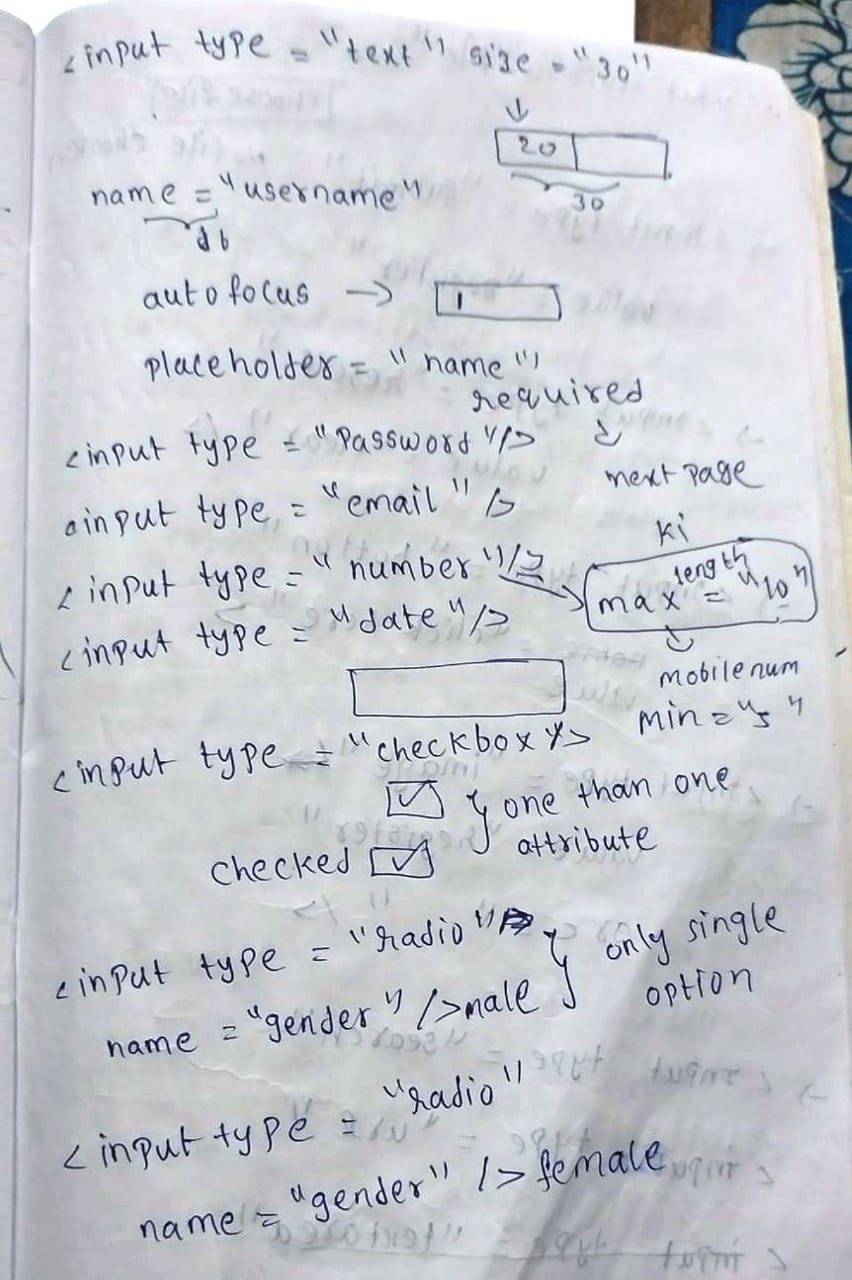 <input type = "text" size = "30"
↓
20
30
name = "username"
db
autofocus →
placeholder = "name"
required
↓
<input type = "Password"/>
next page
ki
<input type = "email" />
<input type = "number"/>
max length = "10"
<input type = "date"/>
mobile num
min = "5"
<input type = "checkbox"/>
one than one
attribute
checked
<input type = "radio"
only single
option
name = "gender" />male
<input type = "radio"
name = "gender" /> female